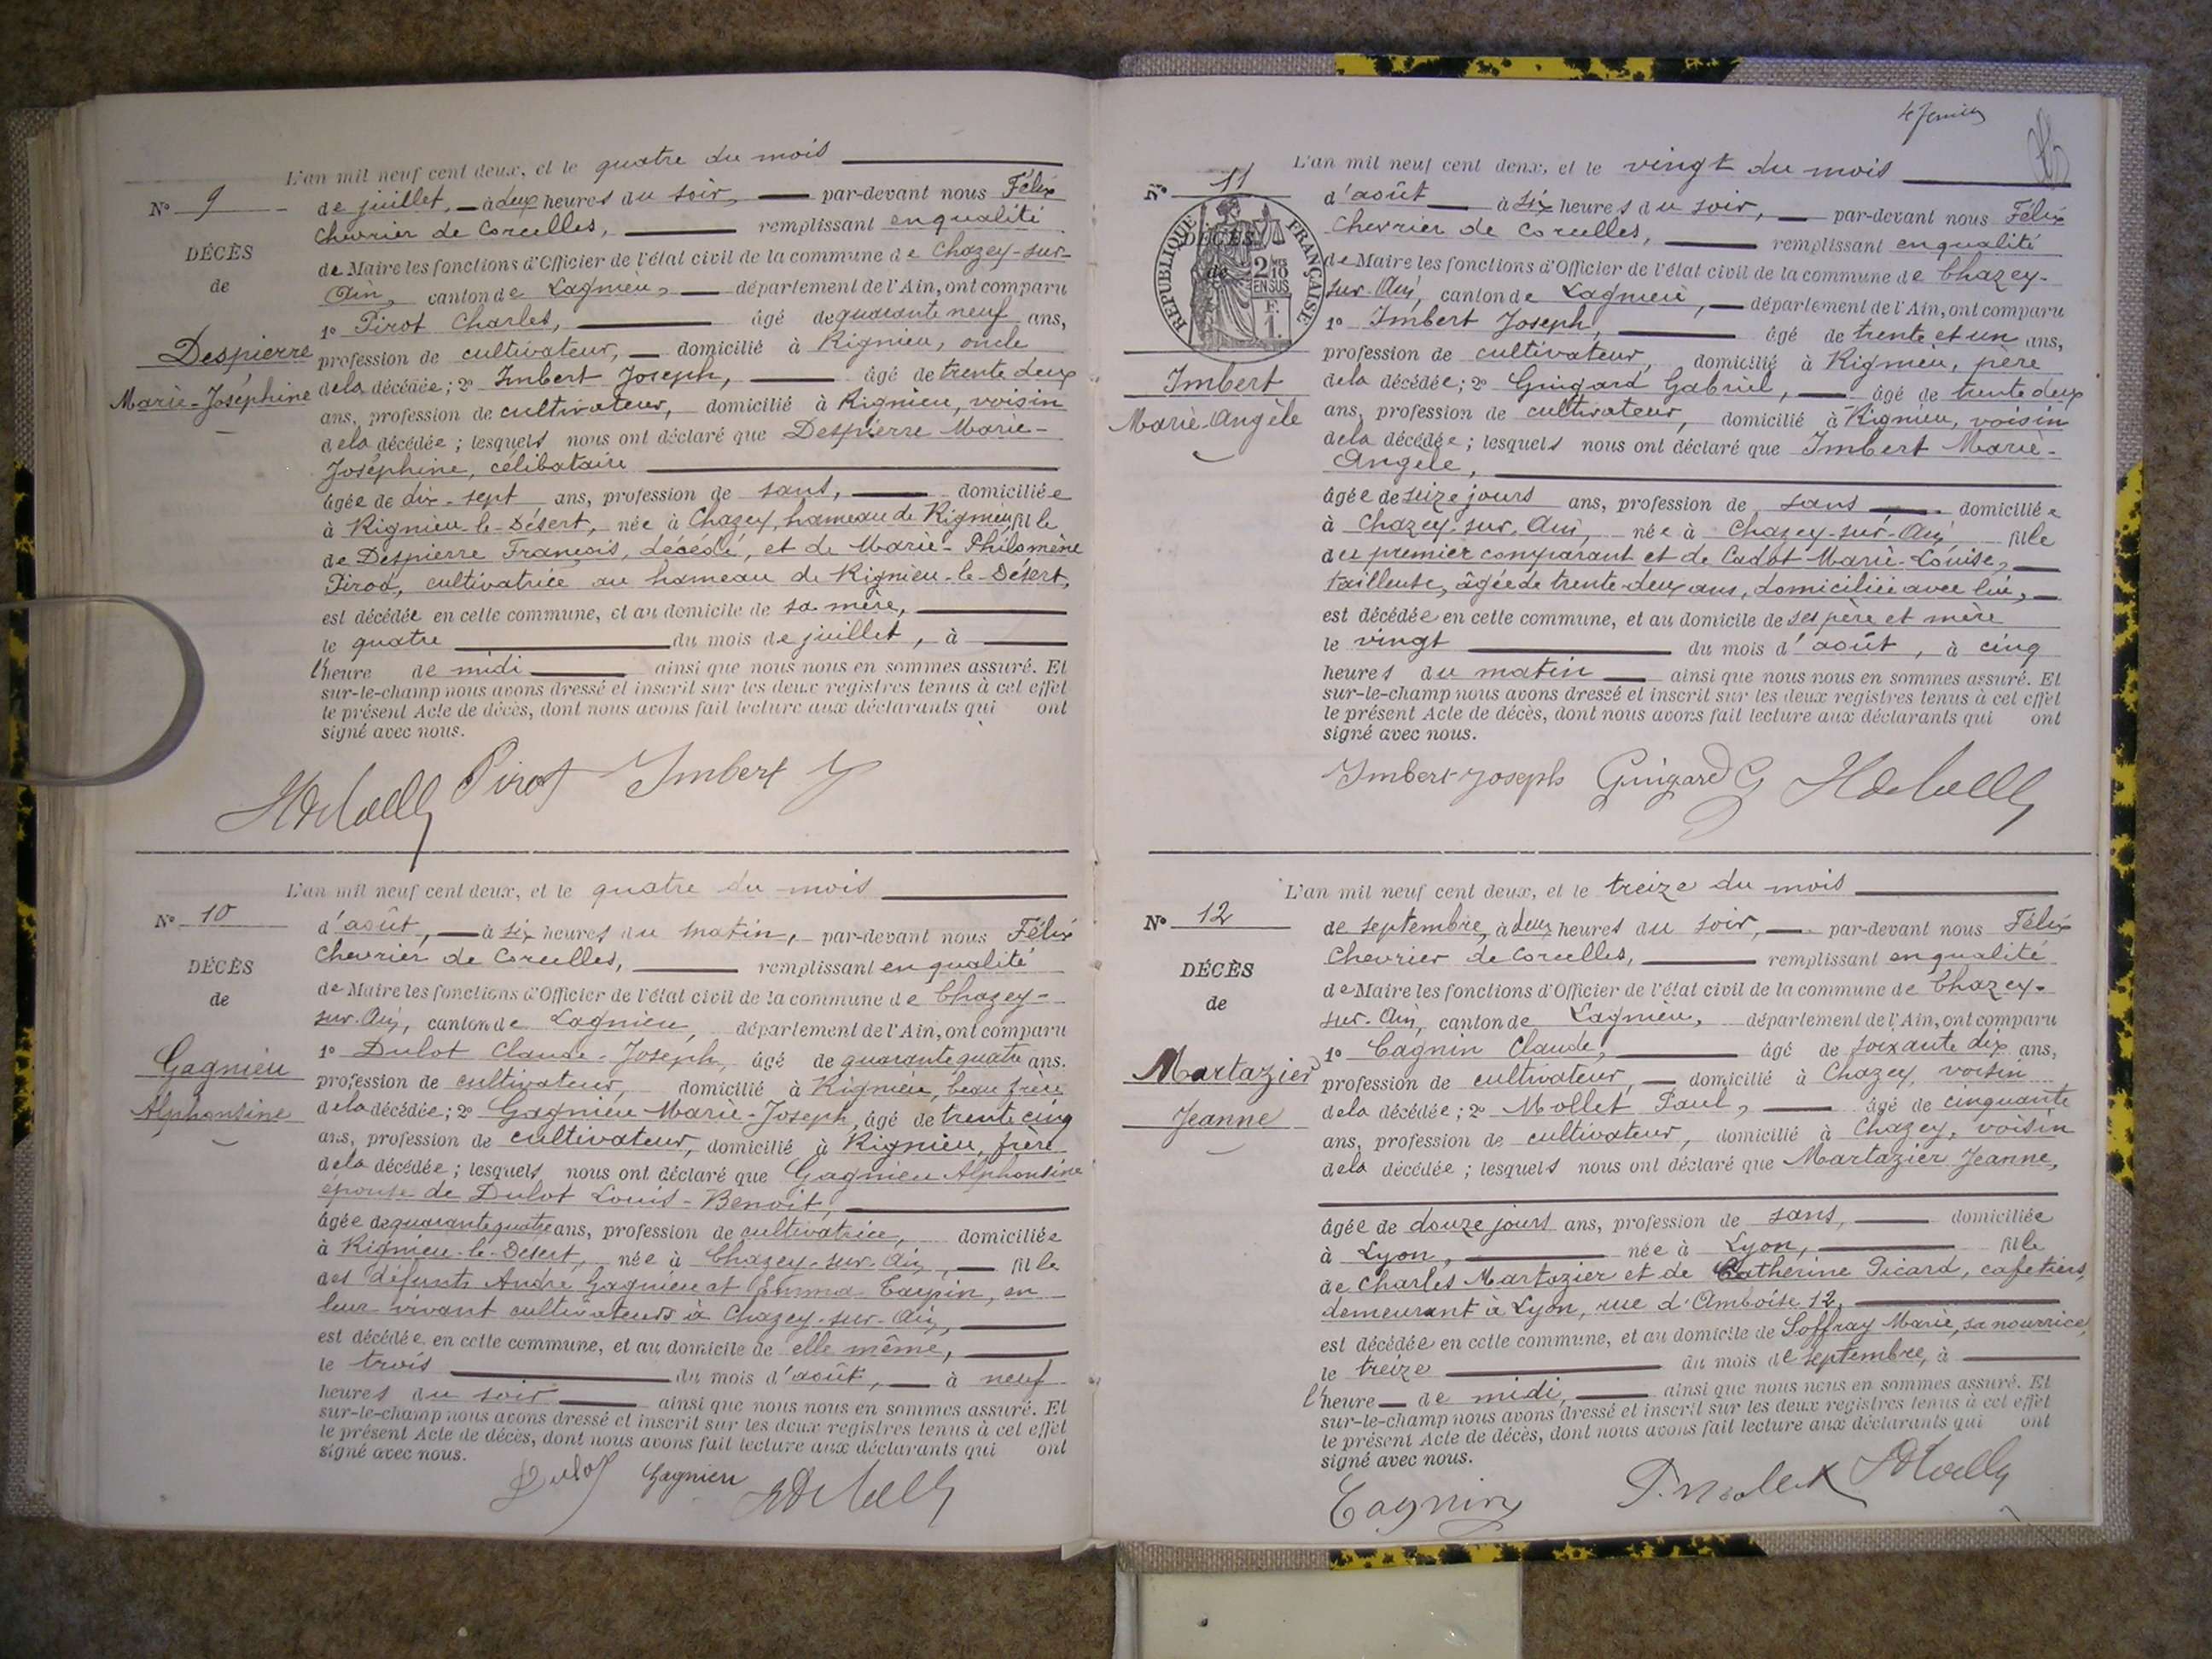 L'an mil neuf cent deux, et le quatre du mois
N° 9
de juillet, à deux heures du soir, par-devant nous Félix
Chevrier de Corcelles, remplissant en qualité
DÉCÈS
de Maire les fonctions d'Officier de l'état civil de la commune de Chazey-sur-
de
Ain, canton de Lagnieu, département de l'Ain, ont comparu
1° Pirot Charles, âgé de quarante neuf ans,
Despierre
profession de cultivateur, domicilié à Rignieu, oncle
Marie-Joséphine
de la décédée; 2° Imbert Joseph, âgé de trente deux
ans, profession de cultivateur, domicilié à Rignieu, voisin
de la décédée; lesquels nous ont déclaré que Despierre Marie-
Joséphine, célibataire
âgée de dix-sept ans, profession de sans, domiciliée
à Rignieu-le-Désert, née à Chazey, hameau de Rignieu, fille
de Despierre François, décédé, et de Marie-Philomène
Pirod, cultivatrice au hameau de Rignieu-le-Désert,
est décédée en cette commune, et au domicile de sa mère,
le quatre du mois de juillet, à
l'heure de midi ainsi que nous nous en sommes assuré. Et
sur-le-champ nous avons dressé et inscrit sur les deux registres tenus à cet effet
le présent Acte de décès, dont nous avons fait lecture aux déclarants qui ont
signé avec nous.
Pirot Imbert J
L'an mil neuf cent deux, et le quatre du mois
N° 10
d'août, à six heures du matin, par-devant nous Félix
Chevrier de Corcelles, remplissant en qualité
DÉCÈS
de Maire les fonctions d'Officier de l'état civil de la commune de Chazey-
de
sur-Ain, canton de Lagnieu, département de l'Ain, ont comparu
1° Dulot Claude-Joseph, âgé de quarante quatre ans.
Gagnieu
profession de cultivateur, domicilié à Rignieu, beau frère
Alphonsine
de la décédée; 2° Gagnieu Marie-Joseph, âgé de trente cinq
ans, profession de cultivateur, domicilié à Rignieu, frère
de la décédée; lesquels nous ont déclaré que Gagnieu Alphonsine
épouse de Dulot Louis-Benoit,
âgée de quarante quatre ans, profession de cultivatrice, domiciliée
à Rignieu-le-Désert, née à Chazey-sur-Ain, fille
des défunts André Gagnieu et Emma Carpin, en
leur vivant cultivateurs à Chazey-sur-Ain,
est décédée en cette commune, et au domicile de elle même,
le trois du mois d'août, à neuf
heures du soir ainsi que nous nous en sommes assuré. Et
sur-le-champ nous avons dressé et inscrit sur les deux registres tenus à cet effet
le présent Acte de décès, dont nous avons fait lecture aux déclarants qui ont
signé avec nous.
Dulot Gagnieu
L'an mil neuf cent deux, et le vingt du mois
N° 11
d'août à six heures du soir, par-devant nous Félix
Chevrier de Corcelles, remplissant en qualité
RÉPUBLIQUE FRANÇAISE
2/10 EN SUS
F. 1.
DÉCÈS
de Maire les fonctions d'Officier de l'état civil de la commune de Chazey-
de
sur-Ain, canton de Lagnieu, département de l'Ain, ont comparu
1° Imbert Joseph, âgé de trente et un ans,
profession de cultivateur, domicilié à Rignieu, père
Imbert
de la décédée; 2° Guigard Gabriel, âgé de trente deux
Marie-Angèle
ans, profession de cultivateur, domicilié à Rignieu, voisin
de la décédée; lesquels nous ont déclaré que Imbert Marie-
Angèle,
âgée de seize jours ans, profession de sans domiciliée
à Chazey-sur-Ain, née à Chazey-sur-Ain fille
du premier comparant et de Cadot Marie-Louise,
tailleuse, âgée de trente-deux ans, domiciliée avec lui,
est décédée en cette commune, et au domicile de ses père et mère
le vingt du mois d'août, à cinq
heures du matin ainsi que nous nous en sommes assuré. Et
sur-le-champ nous avons dressé et inscrit sur les deux registres tenus à cet effet
le présent Acte de décès, dont nous avons fait lecture aux déclarants qui ont
signé avec nous.
Imbert Joseph Guigard G
L'an mil neuf cent deux, et le treize du mois
N° 12
de septembre, à deux heures du soir, par-devant nous Félix
Chevrier de Corcelles, remplissant en qualité
DÉCÈS
de Maire les fonctions d'Officier de l'état civil de la commune de Chazey-
de
sur-Ain, canton de Lagnieu, département de l'Ain, ont comparu
1° Cagnin Claude, âgé de soixante dix ans,
Martazier
profession de cultivateur, domicilié à Chazey, voisin
Jeanne
de la décédée; 2° Mollet Paul, âgé de cinquante
ans, profession de cultivateur, domicilié à Chazey, voisin
de la décédée; lesquels nous ont déclaré que Martazier Jeanne,
âgée de douze jours ans, profession de sans, domiciliée
à Lyon, née à Lyon, fille
de Charles Martazier et de Catherine Picard, cafetiers,
demeurant à Lyon, rue d'Amboise 12,
est décédée en cette commune, et au domicile de Soffray Marie, sa nourrice,
le treize du mois de septembre, à
l'heure de midi, ainsi que nous nous en sommes assuré. Et
sur-le-champ nous avons dressé et inscrit sur les deux registres tenus à cet effet
le présent Acte de décès, dont nous avons fait lecture aux déclarants qui ont
signé avec nous.
Cagnin P. Mollet